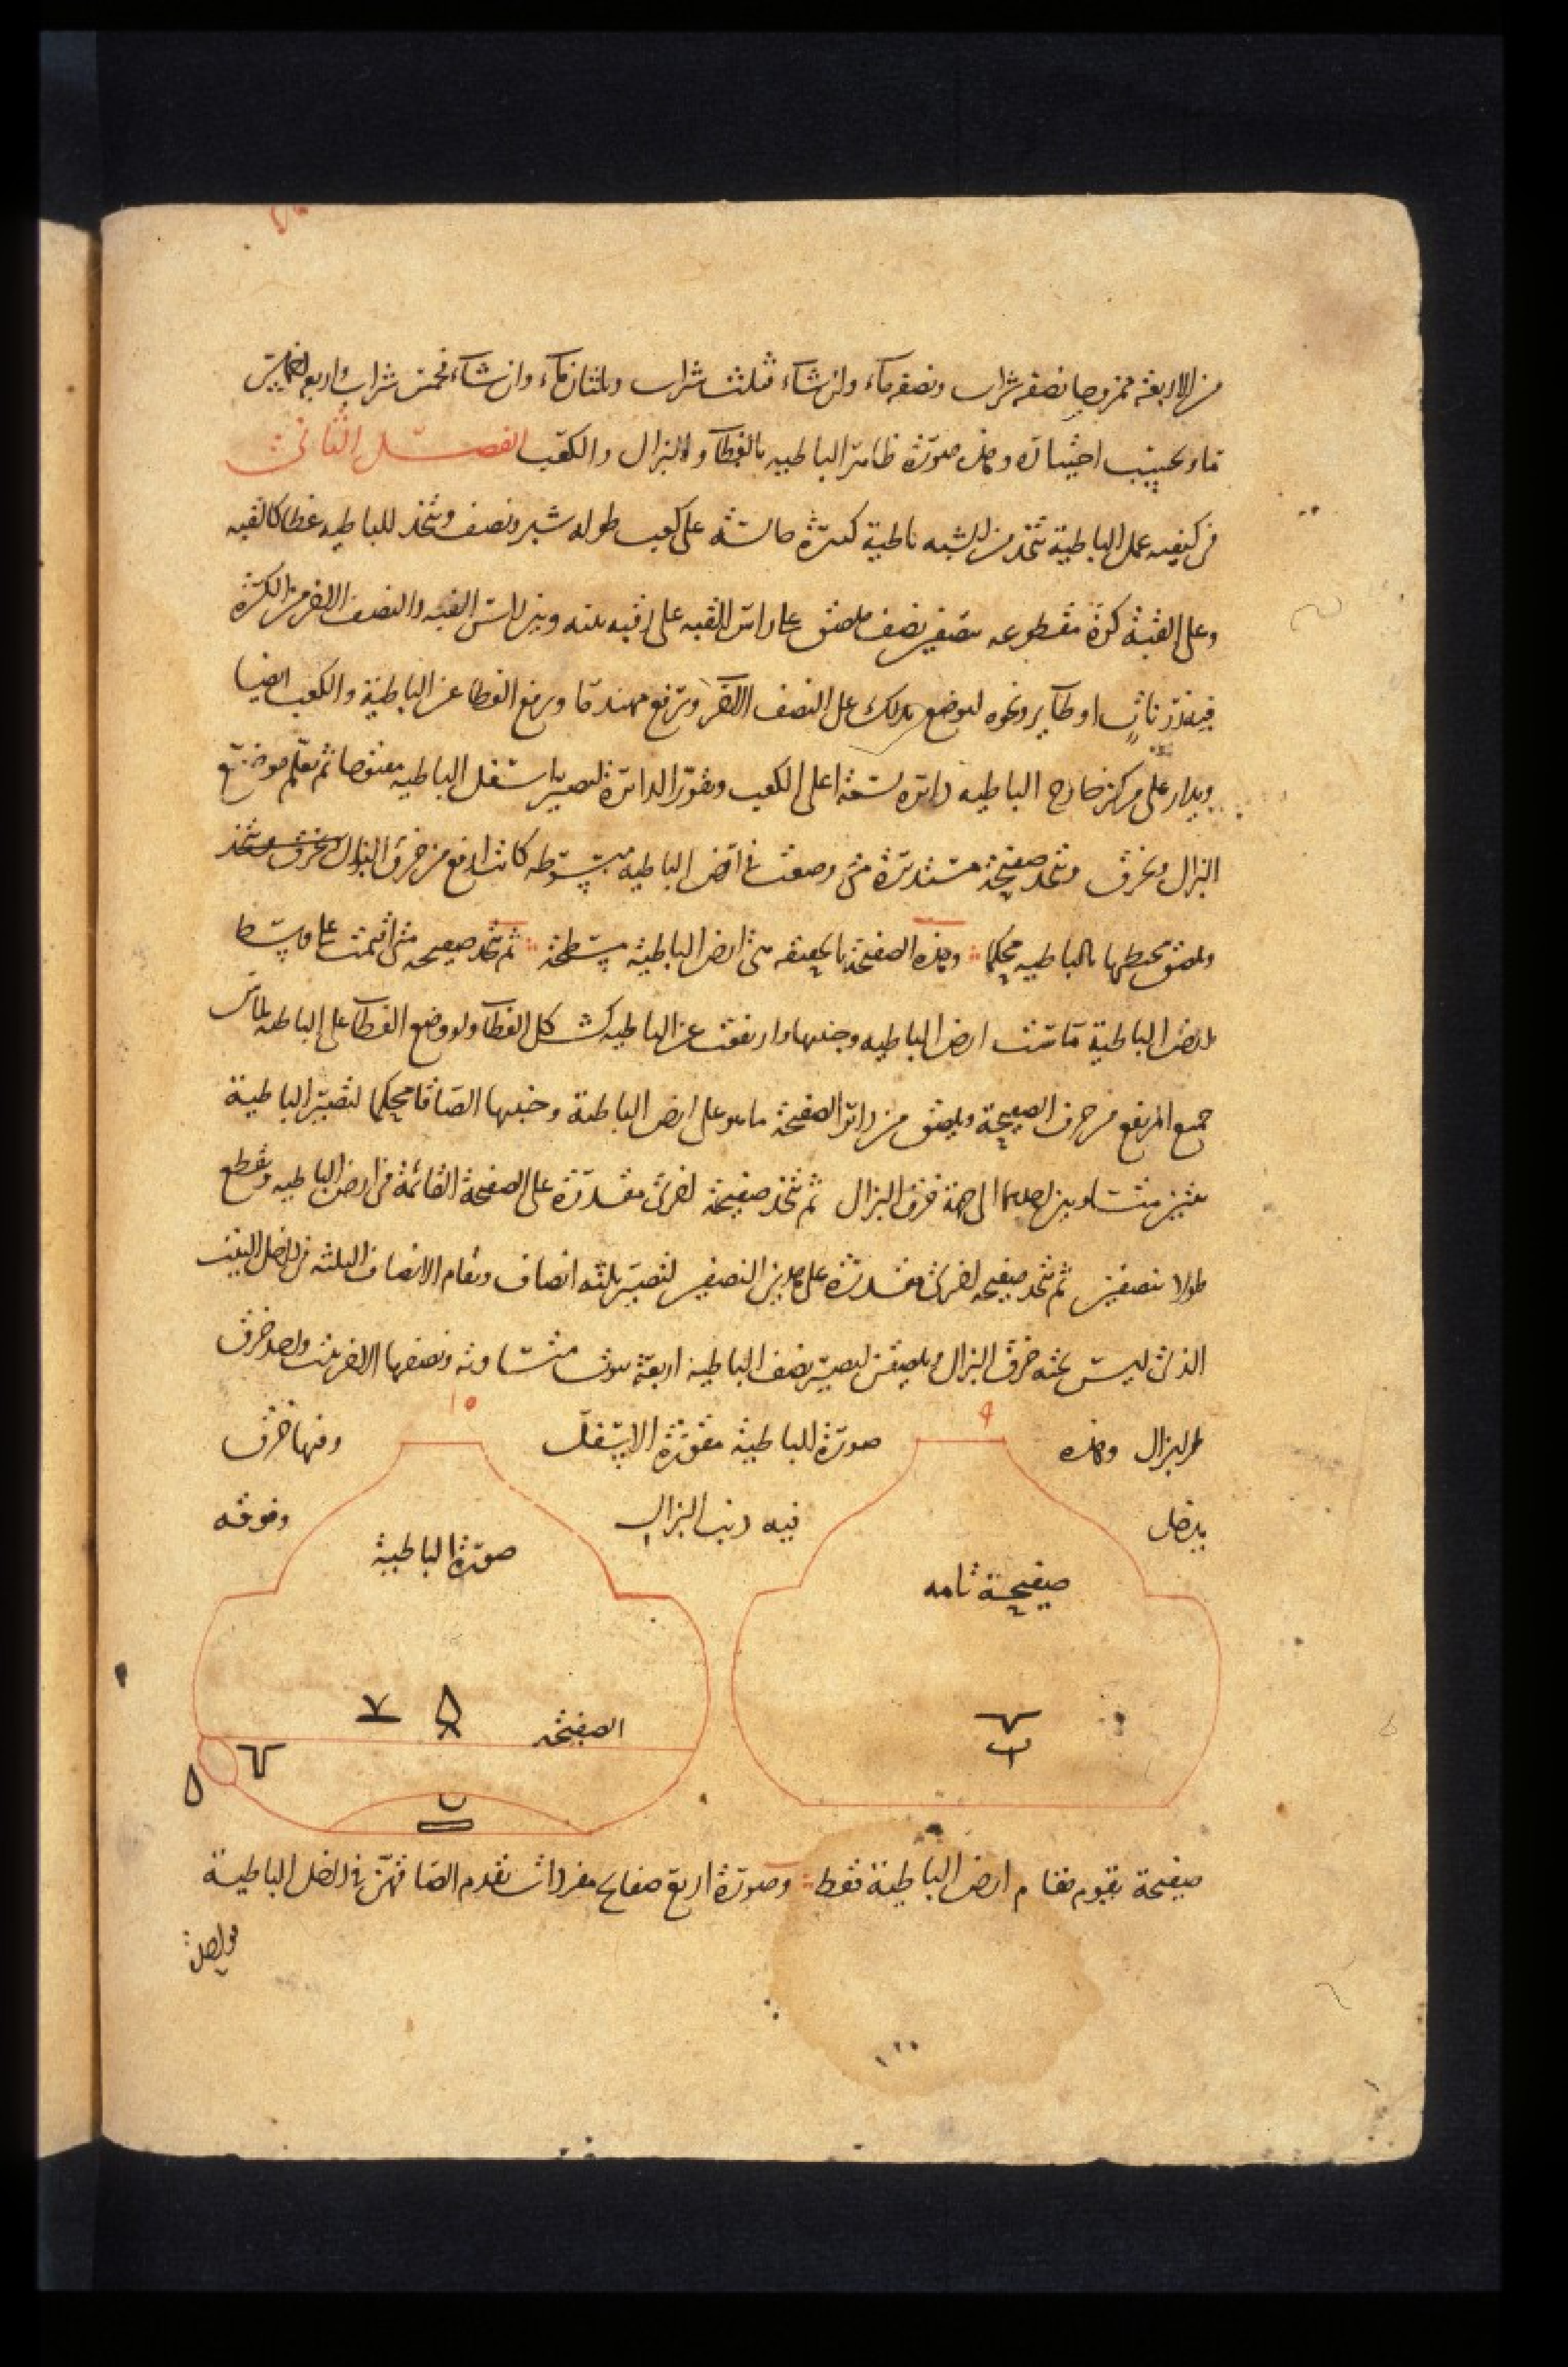 من الاربعة ممزوجا نصفه شراب ونصفه ماء وان شاء فثلث شراب وثلثان ماء وان شاء فخمس شراب واربع اخماس
ماء بحسب اختياره وهذه صورة ظاهر الباطية بالغطاء والبزال والكعب الفصل الثاني
في كيفيه عمل الباطية تتخذ من الشبه باطية كبيرة جالسة على كعب طوله شبر ونصف ويتخذ للباطيه غطا كالقبه
وعلى القبة كرة مقطوعه بنصفين نصف ملصق على راس القبه وبين راس القبه والنصف الاخر من الكرة
او طاير ونحوه ليوضع على النصف الاخر وترفع ويرفع الغطا عن الباطية والكعب ايضا
ويدار على مركز خارج الباطيه دائره لسعة اعلى الكعب وتقور الدائرة ليصير اسفل الباطيه منقوصا ثم تعلم موضع
البزال ويخرق ويتخذ صفيحة مستديرة متى وضعت في ارض الباطيه مبسوطه كانت ارفع من خرق البزال
ويلصق محيطها بالباطيه محكما وهذه الصفيحة بالحقيقه هي ارض الباطية مسطحة ثم تتخذ صفيحه متى اقيمت على وسط
ارض الباطية ماست ارض الباطيه وجنبها وارتفعت عن الباطيه كشكل الغطاء ولو وضع الغطاء على الباطيه لماس
جميع المرتفع من حرف الصفيحة ويلصق من دائر الصفيحة ما هو على ارض الباطية وجنبها الصاقا محكما لتصير الباطية
بيتين متساويين احدهما الى جهة خرق البزال ثم تتخذ صفيحة اخرى مقدرة على الصفيحة القائمة في ارض الباطيه وتقطع
طولا بنصفين ثم تتخذ صفيحه اخرى مقدرة على هذين النصفين لتصير ثلثه انصاف وتقام الانصاف الثلثه في داخل البيت
الذي ليس بجنبه خرق البزال ويلصقن ليصير نصف الباطية اربعة بيوت متساويه ونصفها الاخر بيت واحد خرق
البزال وهذه صورة الباطية مقورة الاسفل ومنها خرق
يدخل فيه ذنب البزال وفوقه
صفيحة تامه
صورة الباطية
الصفيحه
صفيحة تقوم مقام ارض الباطية فقط وصورة اربع صفايح مفردات تقدم الصاقهن في داخل الباطية